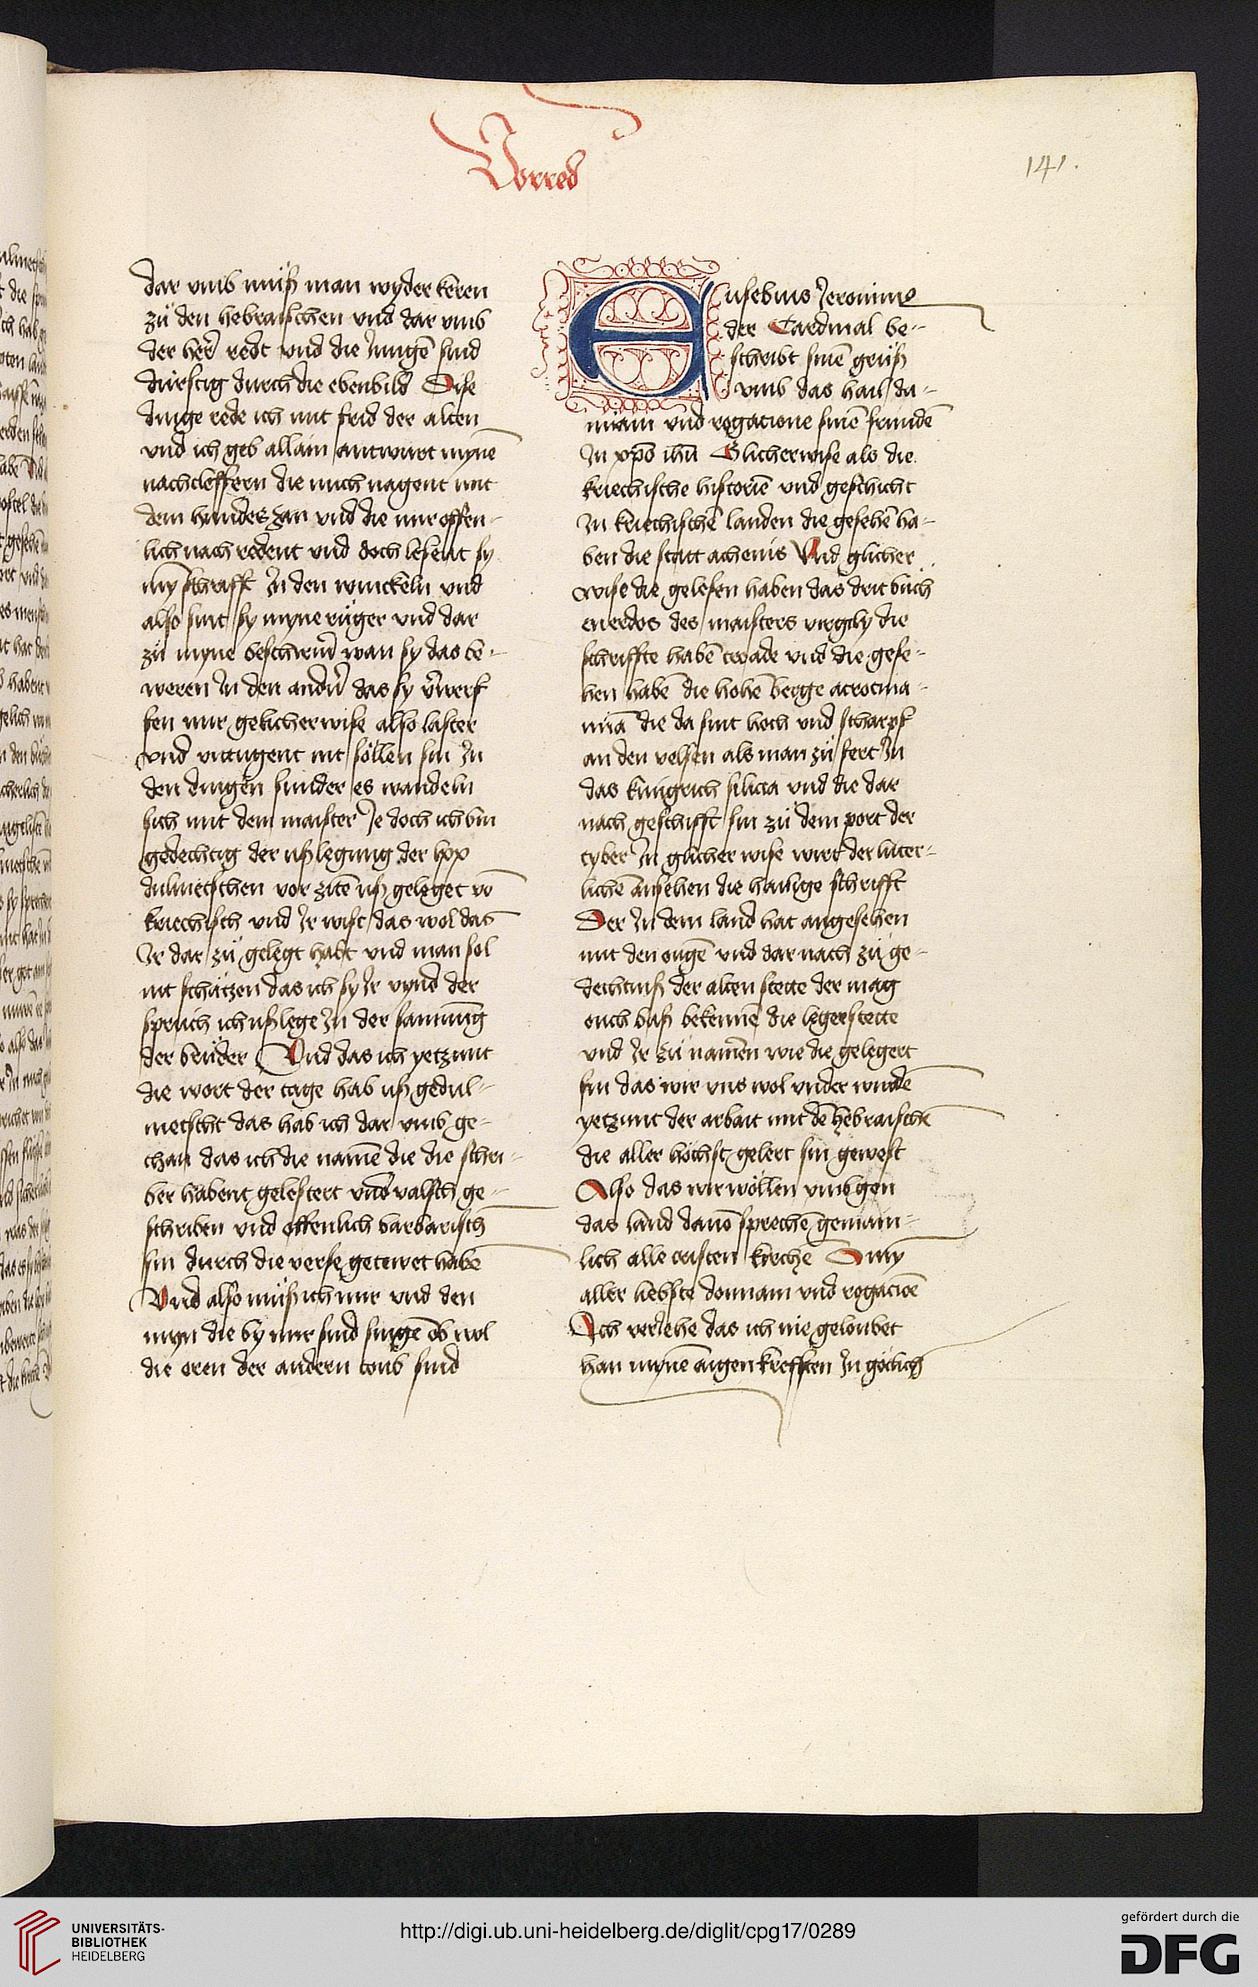 Vorred
141.
dar vmb muͦß man wyder keren
zuͦ den hebraischen vnd dar vmb
der her̄ redt vnd die Jungē sind
durstig durch die ebenbild Dise
dinge rede ich mit frid der alten
vnd ich geb allain antwurt mynē
nachcleffern die mich nagent mit
dem hundes zan vnd die mir offen-
lich nach redent vnd doch lesent sy
my schrifft Jn den winckeln vnd
also sint sy myne ruͤger vnd dar
zuͦ myne beschirm̄ wan sy das be-
weren Jn den andn̄ das sy v̄werf
fen mir gelicherwise also laster
vnd vntugent nit soͤllen sin Jn
den dingen sunder es wandeln
sich mit dem maister Je doch ich bin
gedechtig der vßlegung der lxx
dulmetschen vor zitē vß geleget vō
kriechisch vnd Jr wist das wol das
Jr dar zuͦ gelegt habt vnd man sol
nit schaͤtzen das ich sy Jr vynd der
spruch ich vßlege Jn der samnūng
der bruͤder Vnd das ich yetzunt
die wort der tage hab vß gedul-
metscht das hab ich dar vmb ge-
than das ich die namē die die schri-
ber habent gelestert vnd valsch ge-
schriben vnd offenlich barbarisch
sin durch die verse getiret habē
Vnd also muͦß ich mir vnd den
myn die by mir sind singē ob wol
die oren der andern toub sind
Eusebius Jeronimus
der Cardinal be-
schribt sinē gruͦß
vmb das hail du-
miani vnd rogatione sinē frunden
Jn xp̄o ihū Glicherwise als die
kriechische historiē vnd geschicht
Jn kriechischē landen die gesehē ha-
ben die statt athenis Vnd glicher
wise die gelesen haben das drit buͦch
enerdos des maisters virgily die
schriffte habē troade vnd die gese-
hen habē die hohē berge acrocina-
niā die da sint hoch vnd scharpf
an den velsen als man zuͦ fert Jn
das kungrich silicia vnd die dar
nach geschifft sin zuͦ dem port der
tyber Jn glicher wise wirt der luter-
lichē ansehen die hailige schrifft
Der Jn dem land hat angesehen
mit den ougē vnd dar nach zuͦ ge-
dechtnuß der alten stette der mag
ouch baß bekennē die legerstette
vnd Jr zuͦ namen wie die gelegert
sin das wir vns wol vnder windē
yetzunt der arbait mit dē hebraischē
die aller hoͤchst gelert sin gewest
Also das wir woͤllen vmbgen
das land dauō sprechē gemain-
lich alle cristen kirchē O my
aller liebste domniam vnd rogationē
Ich veriehe das ich nie geloubet
han mynē aigen krefften Jn goͤtlich
UNIVERSITÄTS-
BIBLIOTHEK
HEIDELBERG
http://digi.ub.uni-heidelberg.de/diglit/cpg17/0289
gefördert durch die
DFG